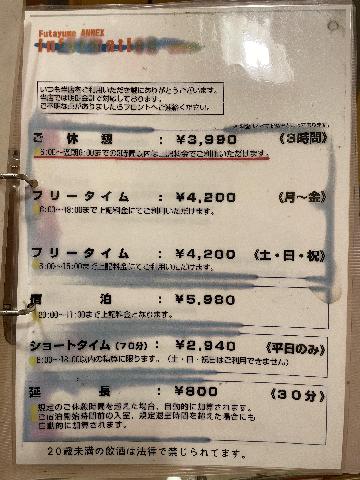 Futayume ANNEX
Information
いつも当店をご利用いただき誠にありがとうございます。
当店では明朗会計で対応しております。
ご不明な点がありましたらフロントへご連絡ください。
ご休憩 : ¥3,990 《3時間》
6:00~翌朝6:00までの3時間以内は上記料金でご利用いただけます。
フリータイム : ¥4,200 《月~金》
6:00~18:00まで上記料金にてご利用いただけます。
フリータイム : ¥4,200 《土・日・祝》
6:00~15:00まで上記料金にてご利用いただけます。
宿泊 : ¥5,980
20:00~11:00まで上記料金となります。
ショートタイム(70分) : ¥2,940 《平日のみ》
6:00~18:00以内の精算に限ります。(土・日・祝日はご利用できません)
延長 : ¥800 《30分》
規定のご休憩時間を超えた場合、自動的に加算されます。
ご宿泊開始時間前の入室、規定退室時間を超えた場合にも
自動的に加算されます。
20歳未満の飲酒は法律で禁じられてます。